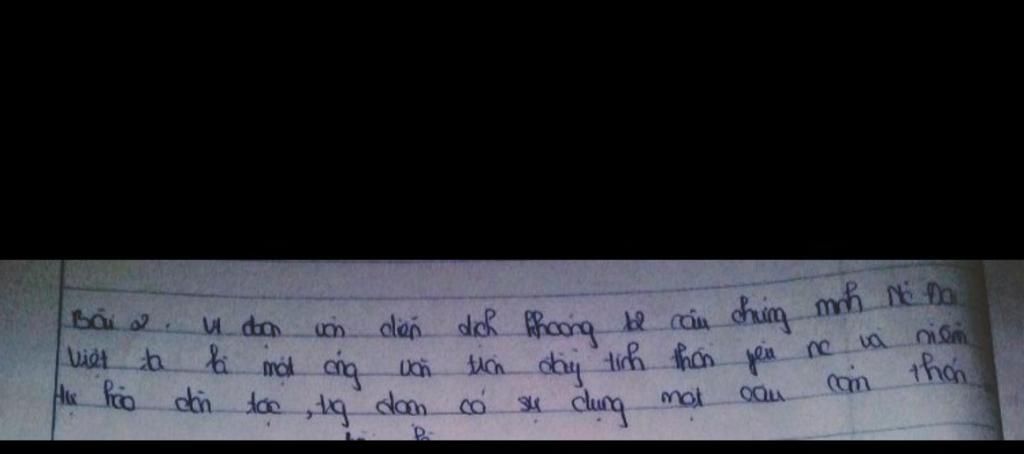 Bài 2. Vt đoạn văn diễn dịch khoảng câu chứng minh Nc Đại
Việt ta là một áng văn tràn đầy tinh thần yêu nc và niềm
tự hào dân tộc, trg đoạn có sử dụng một câu cảm thán